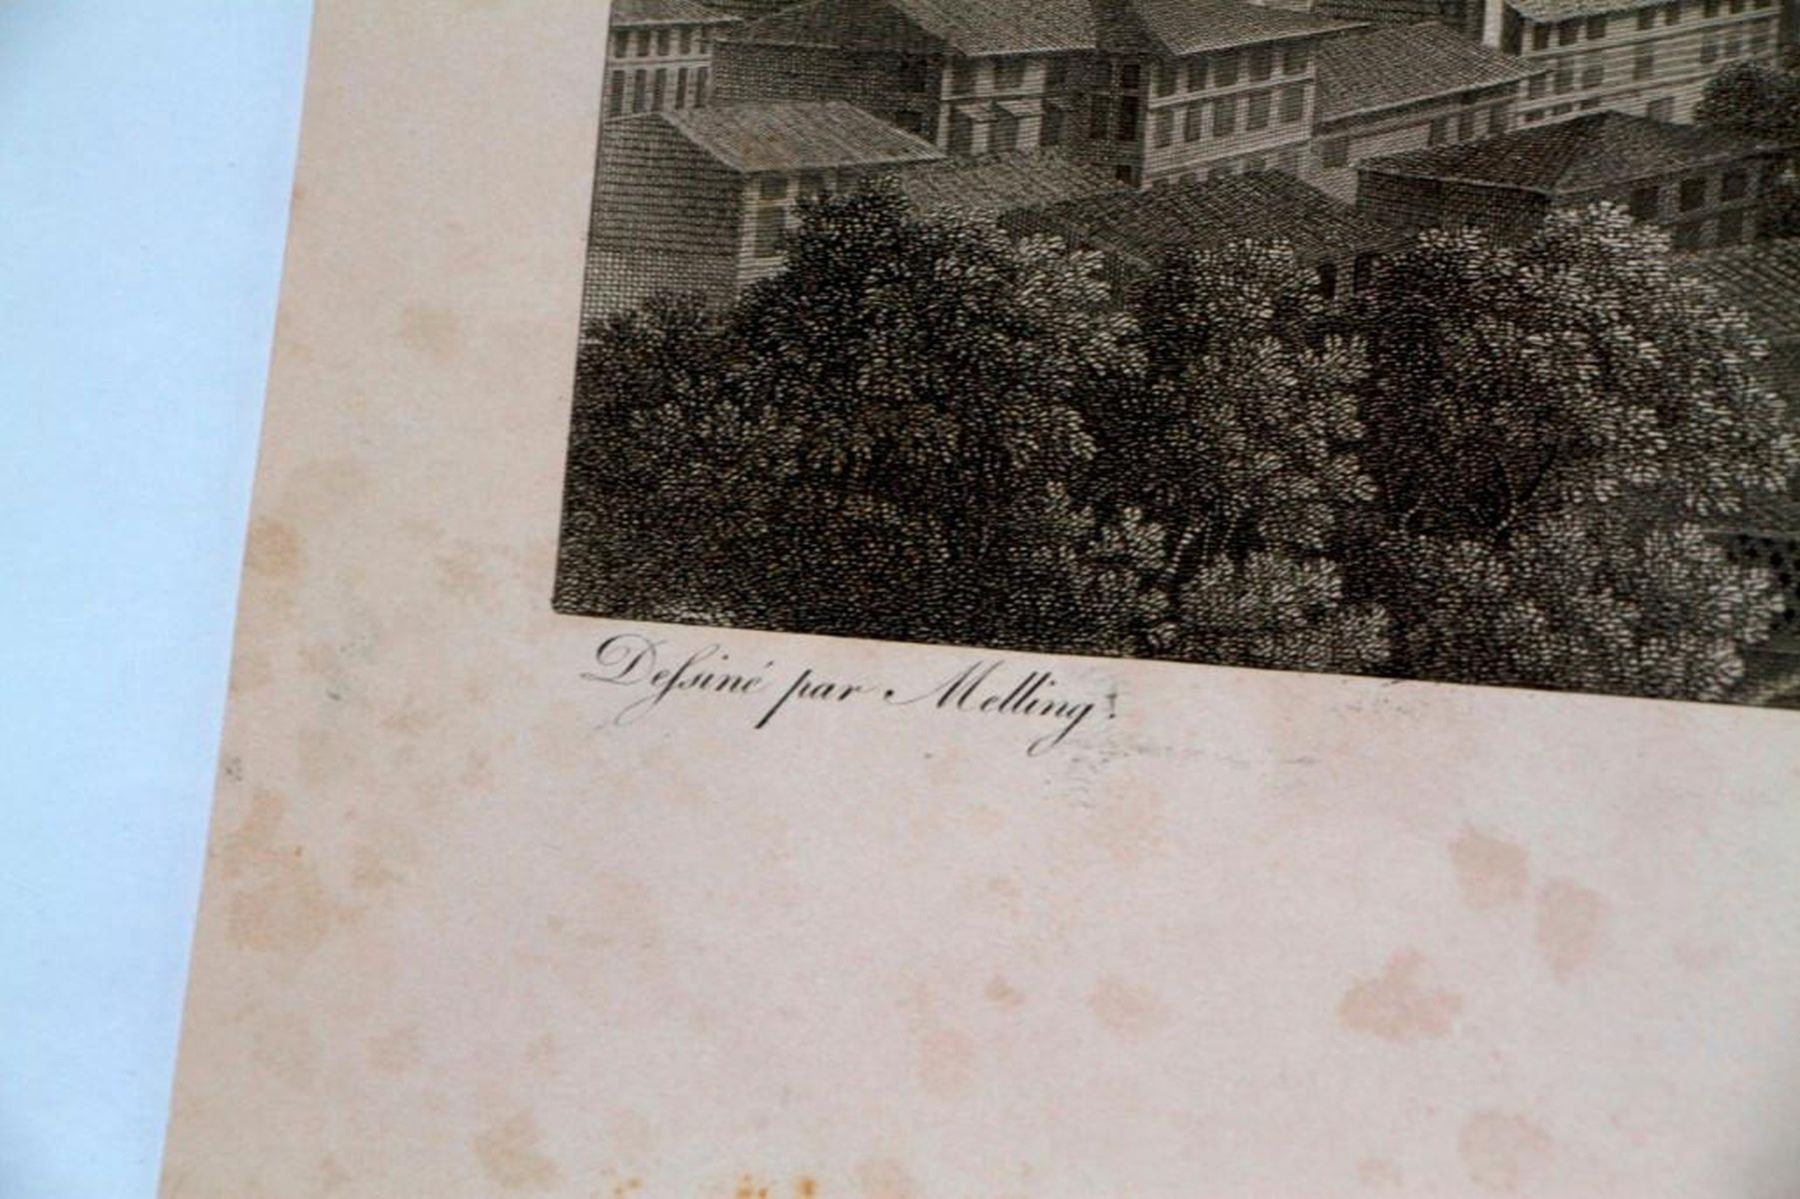 Deſsiné par Melling.